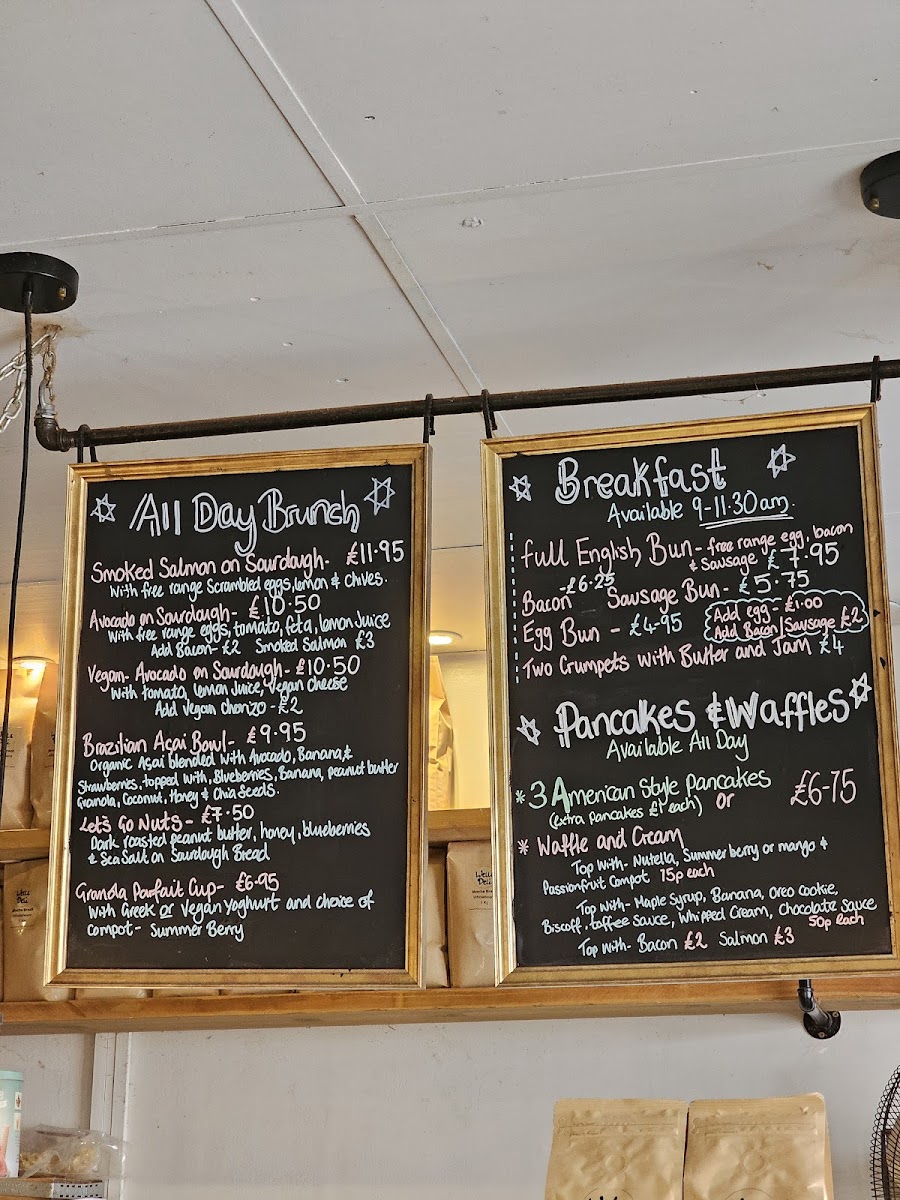 All Day Brunch
Smoked Salmon on Sourdough- £11.95
With free range Scrambled eggs, lemon & chives.
Avocado on Sourdough- £10.50
With free range eggs, tomato, feta, lemon Juice
Add Bacon- £2 Smoked Salmon £3
Vegan- Avocado on Sourdough- £10.50
With tomato, lemon Juice, vegan cheese
Add Vegan Chorizo- £2
Brazilian Açai Bowl- £9.95
Organic Açai blended with Avocado, Banana, &
Strawberries, topped with, Blueberries, Banana, peanut butter
Granola, Coconut, Honey & Chia Seeds.
Let's Go Nuts- £7.50
Dark roasted peanut butter, honey, blueberries
& Sea Salt on Sourdough Bread
Granola Parfait Cup- £6.95
With Greek or Vegan Yoghurt and choice of
Compot- Summer Berry
Breakfast
Available 9-11.30am.
Full English Bun- free range egg, bacon
& Sausage £7.95
Bacon -£6.25 Sausage Bun- £5.75
Egg Bun - £4.95
Add egg- £1.00
Add Bacon/Sausage £2
Two Crumpets with Butter and Jam £4
Pancakes & Waffles
Available All Day
* 3 American Style Pancakes £6-75
(extra pancakes £1 each) or
* Waffle and Cream
Top With- Nutella, Summer berry or mango &
Passionfruit Compot 75p each
Top With- Maple Syrup, Banana, Oreo Cookie,
Biscoff, toffee Sauce, Whipped Cream, Chocolate Sauce
50p each
Top with- Bacon £2 Salmon £3